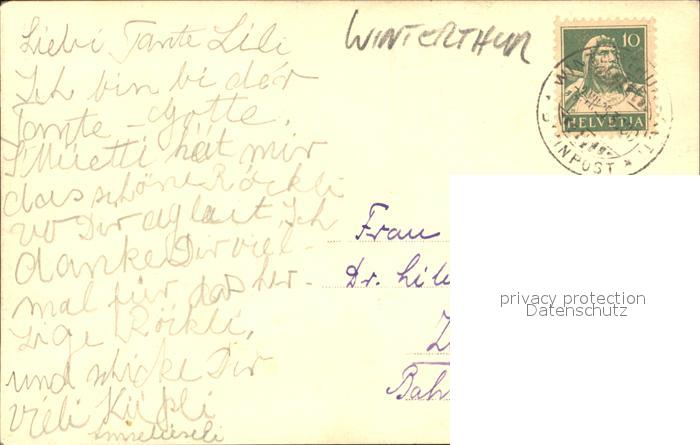 Liebi Tante Lili
Ich bin bi dër
Tante-Gotte.
s'Müetti hät mir
das schöne Röckli
vo Dir aglait. Ich
danke Dir viel-
mal für das her-
zige Röckli,
und schicke Dir
vieli Küssli
WINTERTHUR
10
HELVETIA
BAHNPOST
Frau
Dr. Lili
Z
Bah
privacy protection
Datenschutz